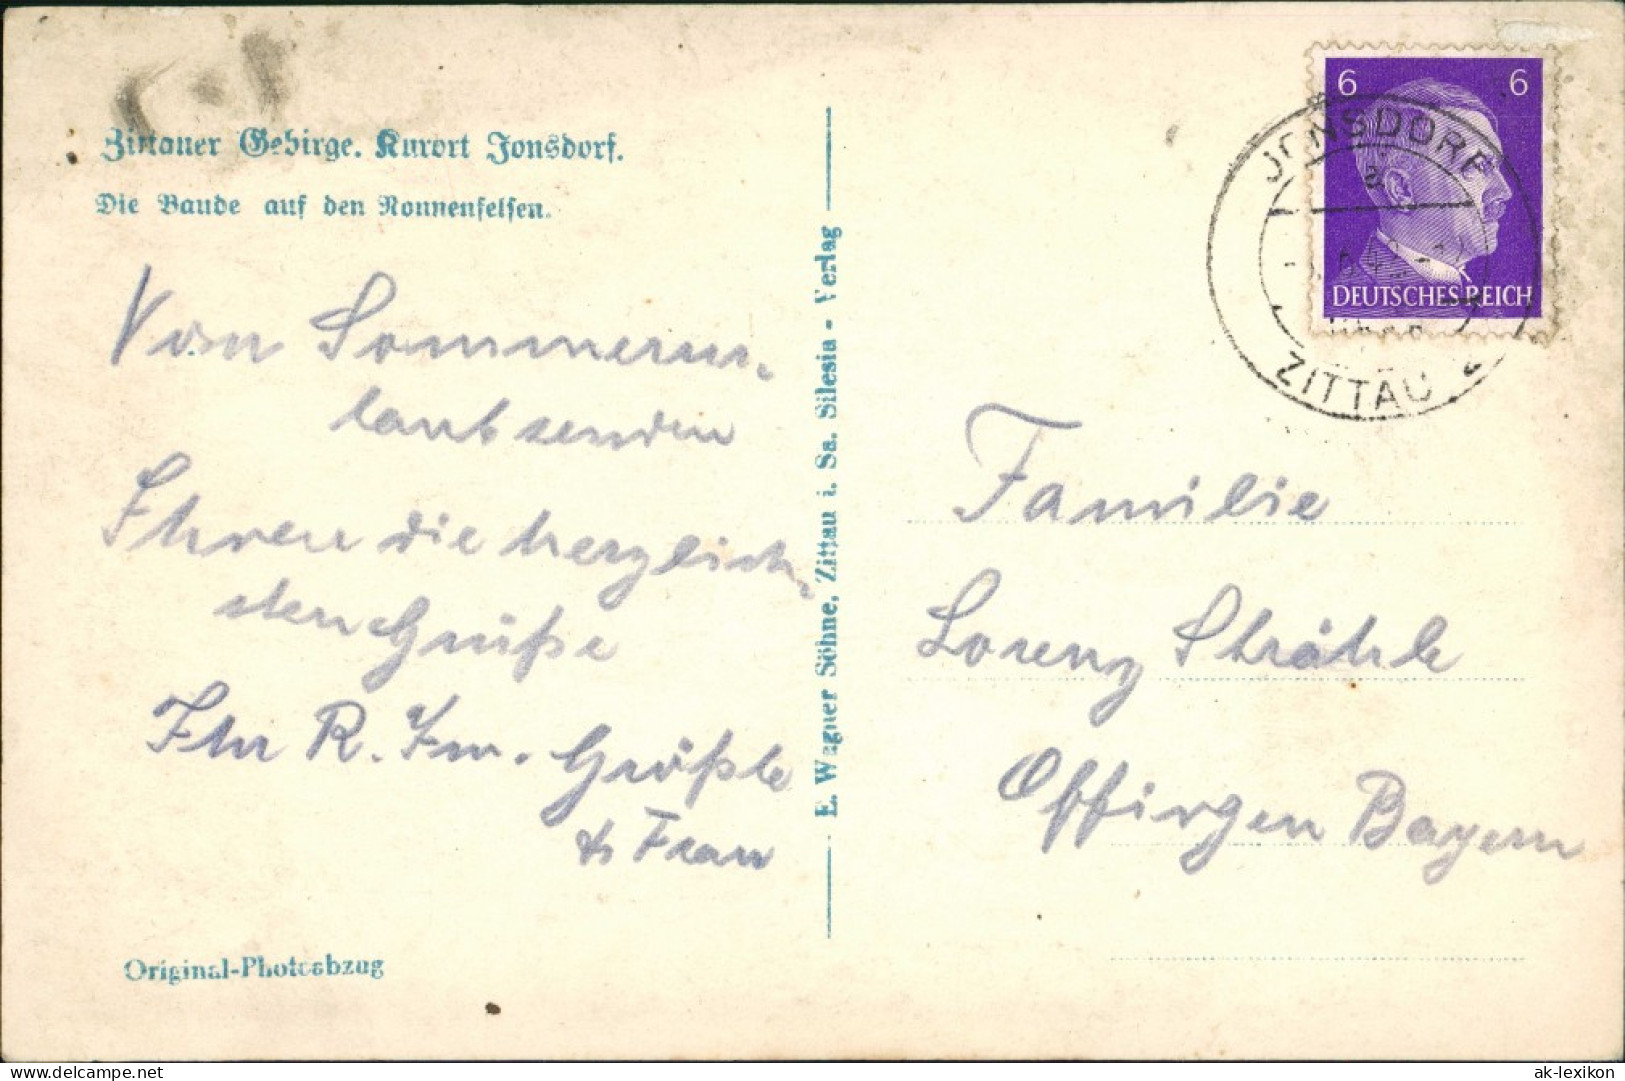 Zittauer Gebirge. Kurort Jonsdorf.
Die Baude auf den Nonnenfelsen.
Vom Sommerur-
laub senden
Ihnen die herzlich-
sten Grüße
Ihr R. Größle
& Frau
Original-Photoabzug
E. Wagner Söhne, Zittau i. Sa. Silesia - Verlag
6 6
DEUTSCHES REICH
JONSDORF
über
ZITTAU 2
Familie
Lorenz Strähle
Offingen Bayern
delcampe.net
ak-lexikon